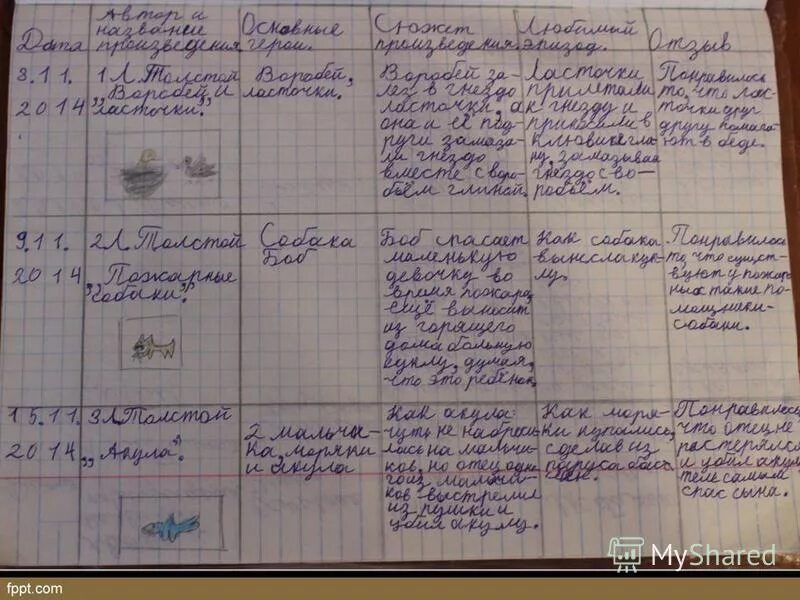 Дата
Автор и
название
произведения.
Основные
герои.
Сюжет
произведения.
Любимый
эпизод.
Отзыв
8.11.
2014
1 Л. Толстой
„Воробей и
ласточки."
Воробей,
ласточки.
Воробей за-
лез в гнездо
ласточки, а
она и её под-
руги замаза-
ли гнездо
вместе с воро-
бьём глиной.
Ласточки
прилетали
к гнезду и
приносили в
клювике гли
ну, замазывая
гнездо с во-
робьём.
Понравилось
то, что лас-
точки друг
другу помога-
ют в беде.
9.11.
2014
2 Л. Толстой
„Пожарные
собаки".
Собака
Боб
Боб спасает
маленькую
девочку во
время пожара,
ещё выносит
из горящего
дома большую
куклу, думая,
что это ребёнок.
Как собака
вынесла кук-
лу.
Понравилось
то, что сущест-
вуют у пожар-
ных такие по-
мощники-
собаки.
15.11.
2014
3 Л. Толстой
„Акула".
2 мальчи-
ка, моряки
и акула
Как акула
чуть не наброси
лась на мальчи-
ков, но отец одно
го из мальчи-
ков выстрелил
из пушки и
убил акулу.
Как моря-
ки купались,
сделав из
паруса басс
ейн.
Понравилось,
что отец не
растерялся
и убил акулу
тем самым
спас сына.
MyShared
fppt.com